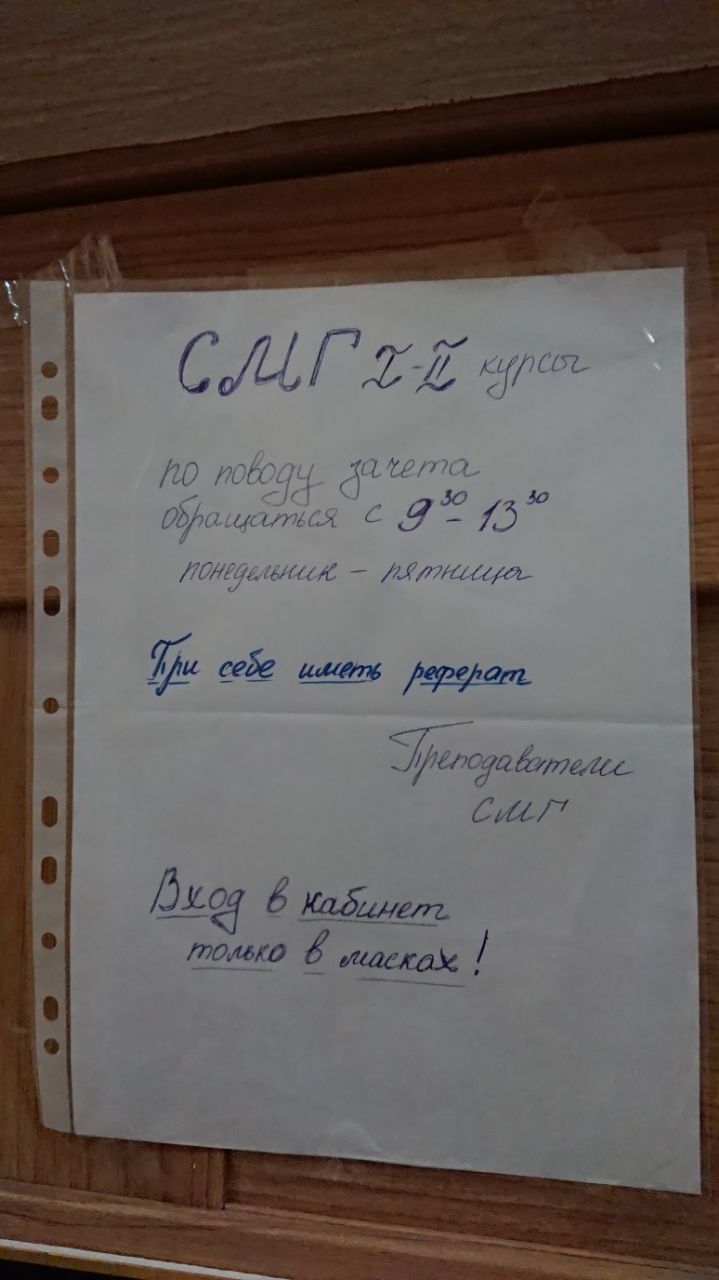 СМГ I-II курсы
по поводу зачета
обращаться с 9³⁰ - 13³⁰
понедельник - пятница
При себе иметь реферат
Преподаватели
СМГ
Вход в кабинет
только в масках!